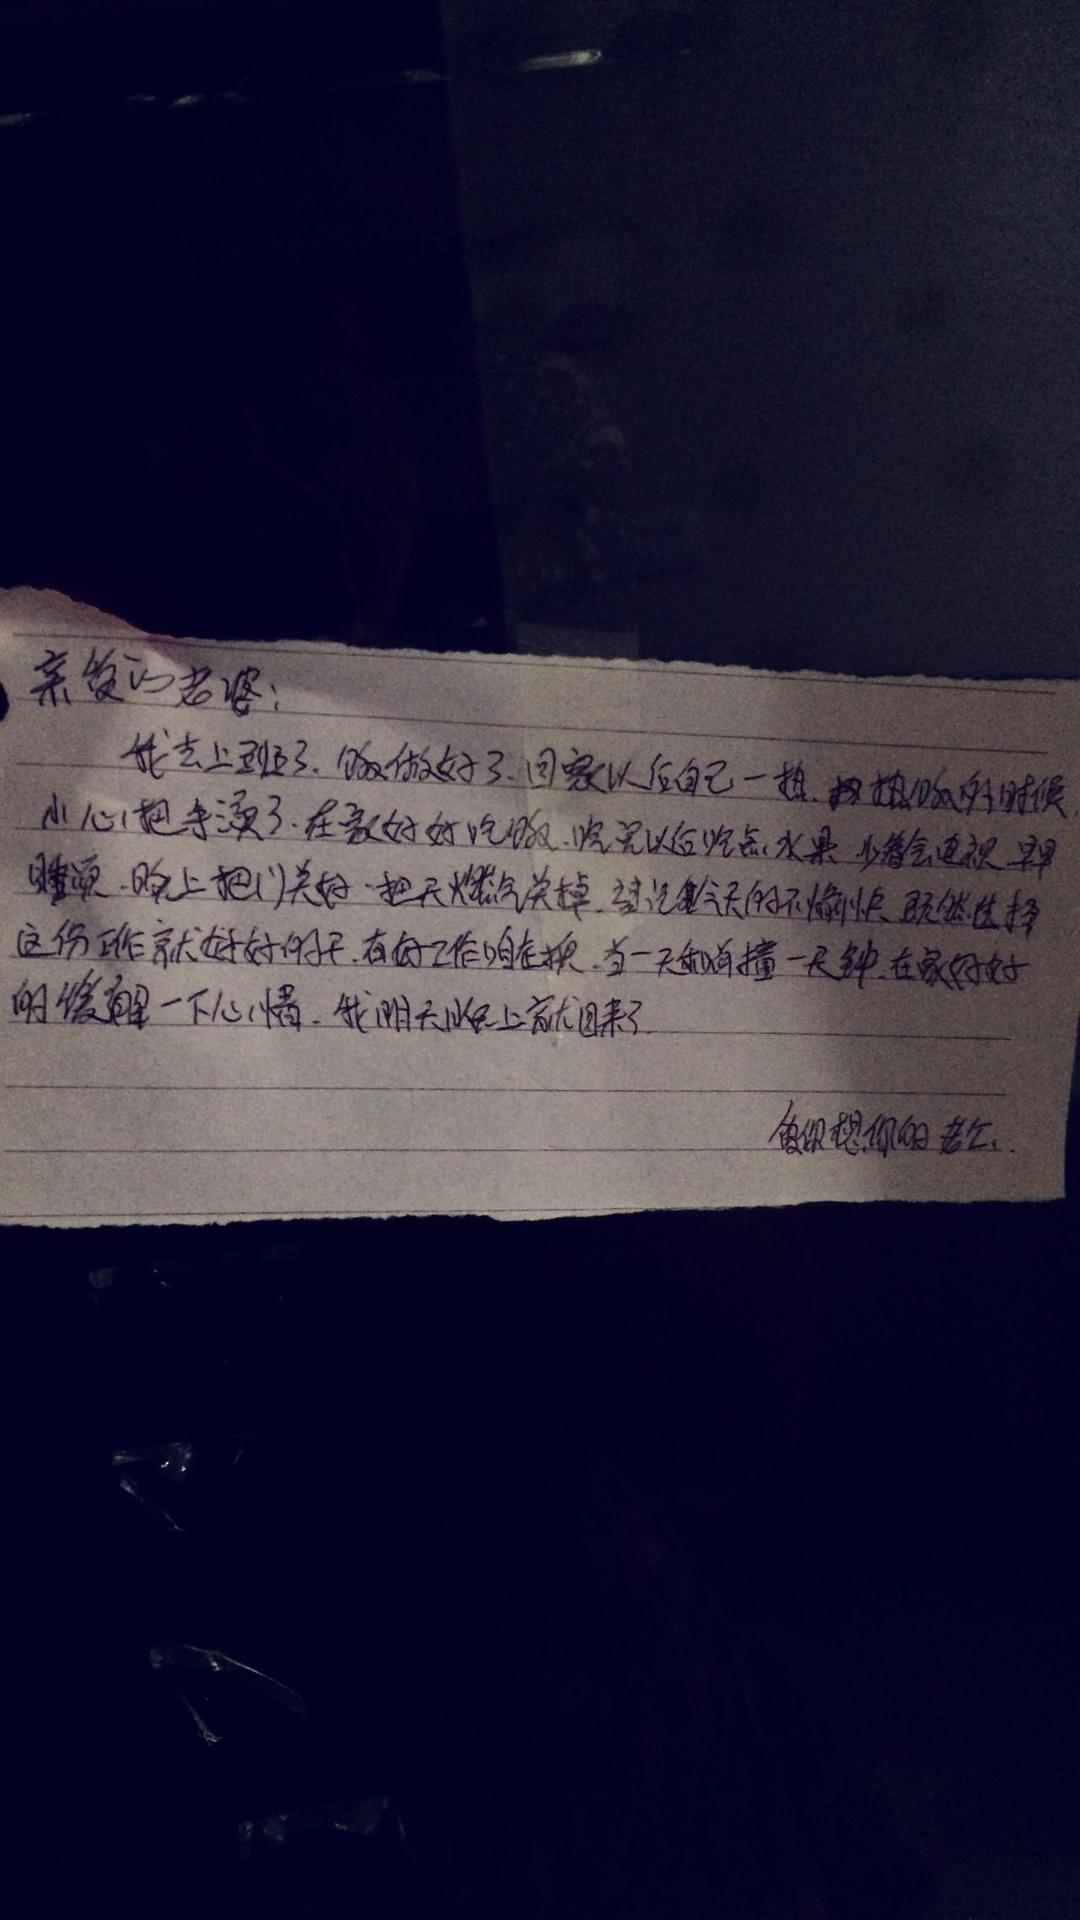 亲爱的老婆：
我去上班了、饭做好了、回家以后自己一热、热饭的时候
小心把手烫了、在家好好吃饭、吃完以后吃点水果 少看会电视 早早
睡觉、晚上把门关好、把天燃气关掉、忘记今天的不愉快 既然选择
这份工作就好好的干、有好工作咱在换、当一天和尚撞一天钟、在家好好
的缓一下心情、我明天晚上就回来了
想你的老公、